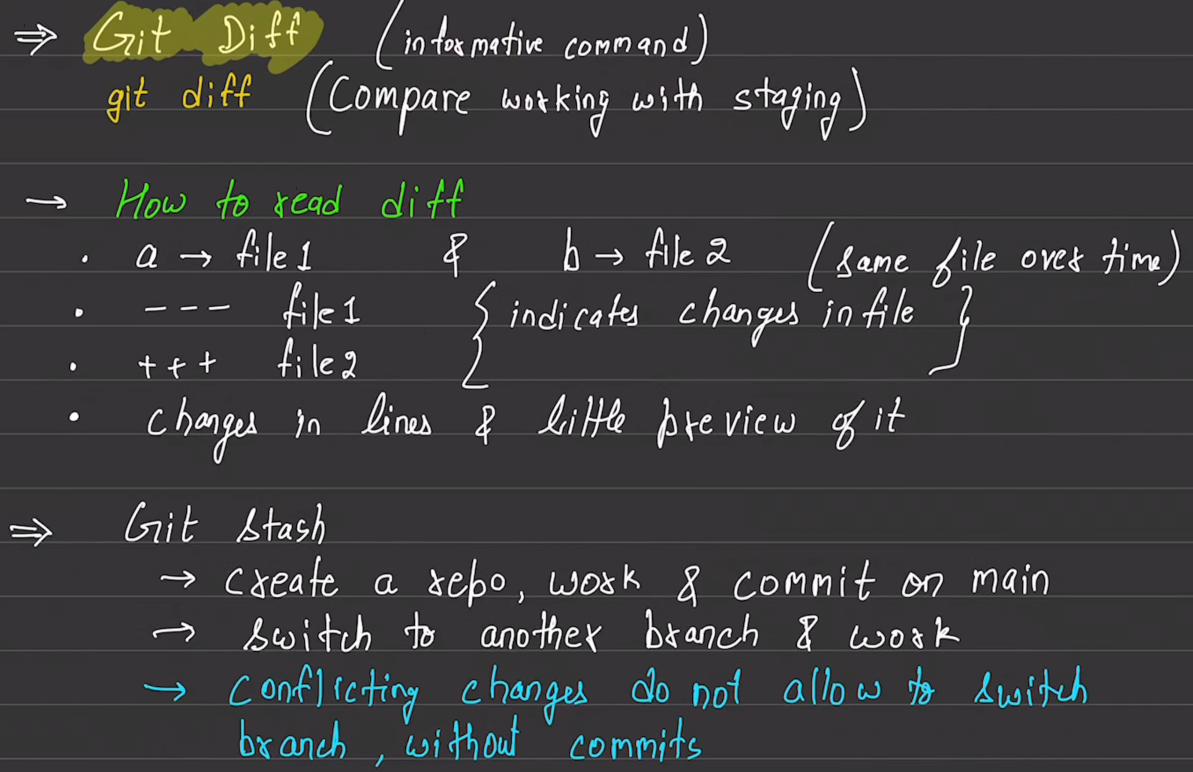 ⇒ Git Diff (informative command)
git diff (Compare working with staging)
→ How to read diff
• a → file1 & b → file2 (same file over time)
• --- file1 { indicates changes in file }
• +++ file2
• changes in lines & little preview of it
⇒ Git stash
→ create a repo, work & commit on main
→ switch to another branch & work
→ conflicting changes do not allow to switch
branch, without commits